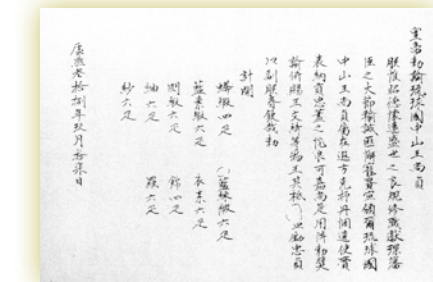 皇帝勅諭琉球國中山王尚貞
朕惟昭德懷遠盛世之良規修職獻琛藩
臣之大節輸誠匪懈寵賚宜頒爾琉球國
中山王尚貞屬在遐方克抒丹悃遣使賫
表納貢忠藎之忱良可嘉尚是用降勅奬
諭併賜王文綺等物王其祗益勵忠貞
以副朕眷欽哉勅
計開
蟒緞四疋 藍緞六疋
藍素緞六疋 衣素六疋
閃緞六疋 錦四疋
紬六疋 羅六疋
紗六疋
康熙叁拾捌年玖月拾柒日